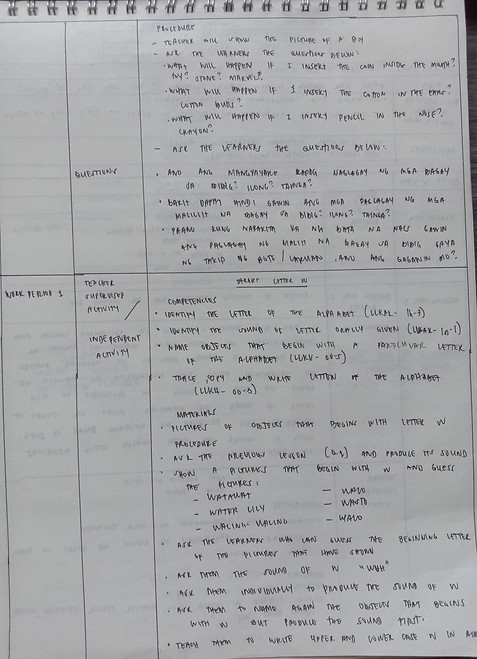 PROCEDURE
- TEACHER WILL SHOW THE PICTURE OF A BOY
- ASK THE LEARNERS THE QUESTIONS BELOW:
• WHAT WILL HAPPEN IF I INSERT THE COIN INSIDE THE MOUTH?
TOY? STONE? MARBEL?
• WHAT WILL HAPPEN IF I INSERT THE COTTON IN THE EARS?
COTTON BUDS?
• WHAT WILL HAPPEN IF I INSERT PENCIL IN THE NOSE?
CRAYON?
- ASK THE LEARNERS THE QUESTIONS BELOW:
QUESTIONS
• ANO ANG MANGYAYARE KAPAG NAGLAGAY NG MGA BAGAY
SA BIBIG? ILONG? TAINGA?
• BAKIT DAPAT HINDI GAWIN ANG MGA PAGLAGAY NG MGA
MALILIIT NA BAGAY SA BIBIG? ILONG? TAINGA?
• PAANO KUNG NAKAKITA KA NG BATA NA NAIS GAWIN
ANG PAGLAGAY NG MALIIT NA BAGAY SA BIBIG GAYA
NG TAKIP NG BOTE / LARUAN. ANO ANG GAGAWIN MO?
WORK PERIOD 1
TEACHER
SUPERVISED
ACTIVITY /
INDEPENDENT
ACTIVITY
TARGET LETTER W
COMPETENCIES
• IDENTIFY THE LETTER OF THE ALPHABET
• IDENTIFY THE SOUND OF LETTER ORALLY GIVEN
• NAME OBJECTS THAT BEGIN WITH A PARTICULAR LETTER
OF THE ALPHABET
• TRACE, COPY AND WRITE LETTER OF THE ALPHABET
MATERIALS
• PICTURES OF OBJECTS THAT BEGINS WITH LETTER W
PROCEDURE
• ASK THE PREVIOUS LESSON AND PRODUCE ITS SOUND
• SHOW A PICTURES THAT BEGIN WITH W AND GUESS
THE PICTURES:
- WATAWAT
- WATER LILY
- WALING-WALING
- WALO
• ASK THE LEARNERS WHO CAN GUESS THE BEGINNING LETTER
OF THE PICTURES THAT HAVE SHOWN
• ASK THEM THE SOUND OF W "WUH"
• ASK THEM INDIVIDUALLY TO PRODUCE THE SOUND OF W
• ASK THEM TO NAME AGAIN THE OBJECTS THAT BEGINS
WITH W BUT PRODUCE THE SOUND FIRST.
• TEACH THEM TO WRITE UPPER AND LOWER CASE W IN AIR